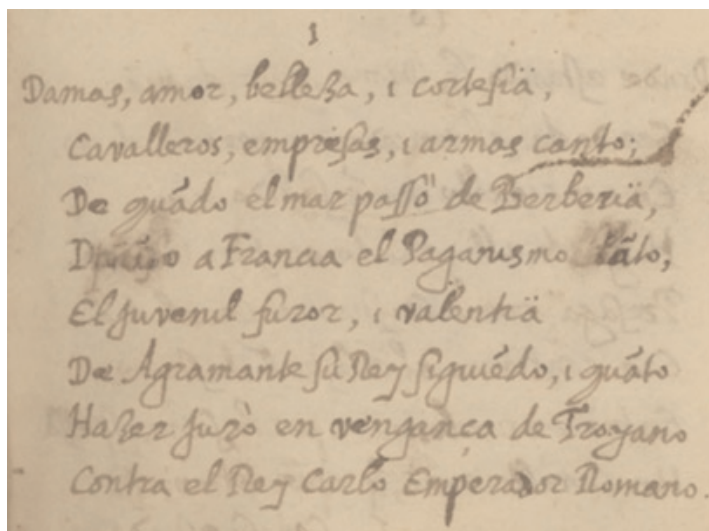 1
Damas, amor, belleza, i cortesiä,
Cavalleros, empresas, i armas canto;
De quãdo el mar passò de Berberiä,
a Francia el Paganismo tãto,
El juvenil furor, i valentiä
De Agramante su Rey siguiẽdo, i quãto
Hazer jurò en vengança de Troyano
Contra el Rey Carlo Emperador Romano.